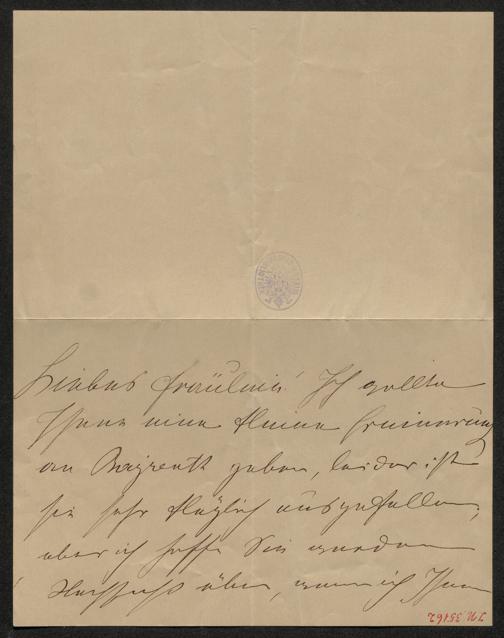 Liebes Fräulein! Ich wollte
Ihnen eine kleine Erinnerung
an Bayreuth geben, leider ist
sie sehr kläglich ausgefallen,
aber ich hoffe Sie werden
Nachsicht üben, wenn ich Ihnen
I.N. 35162